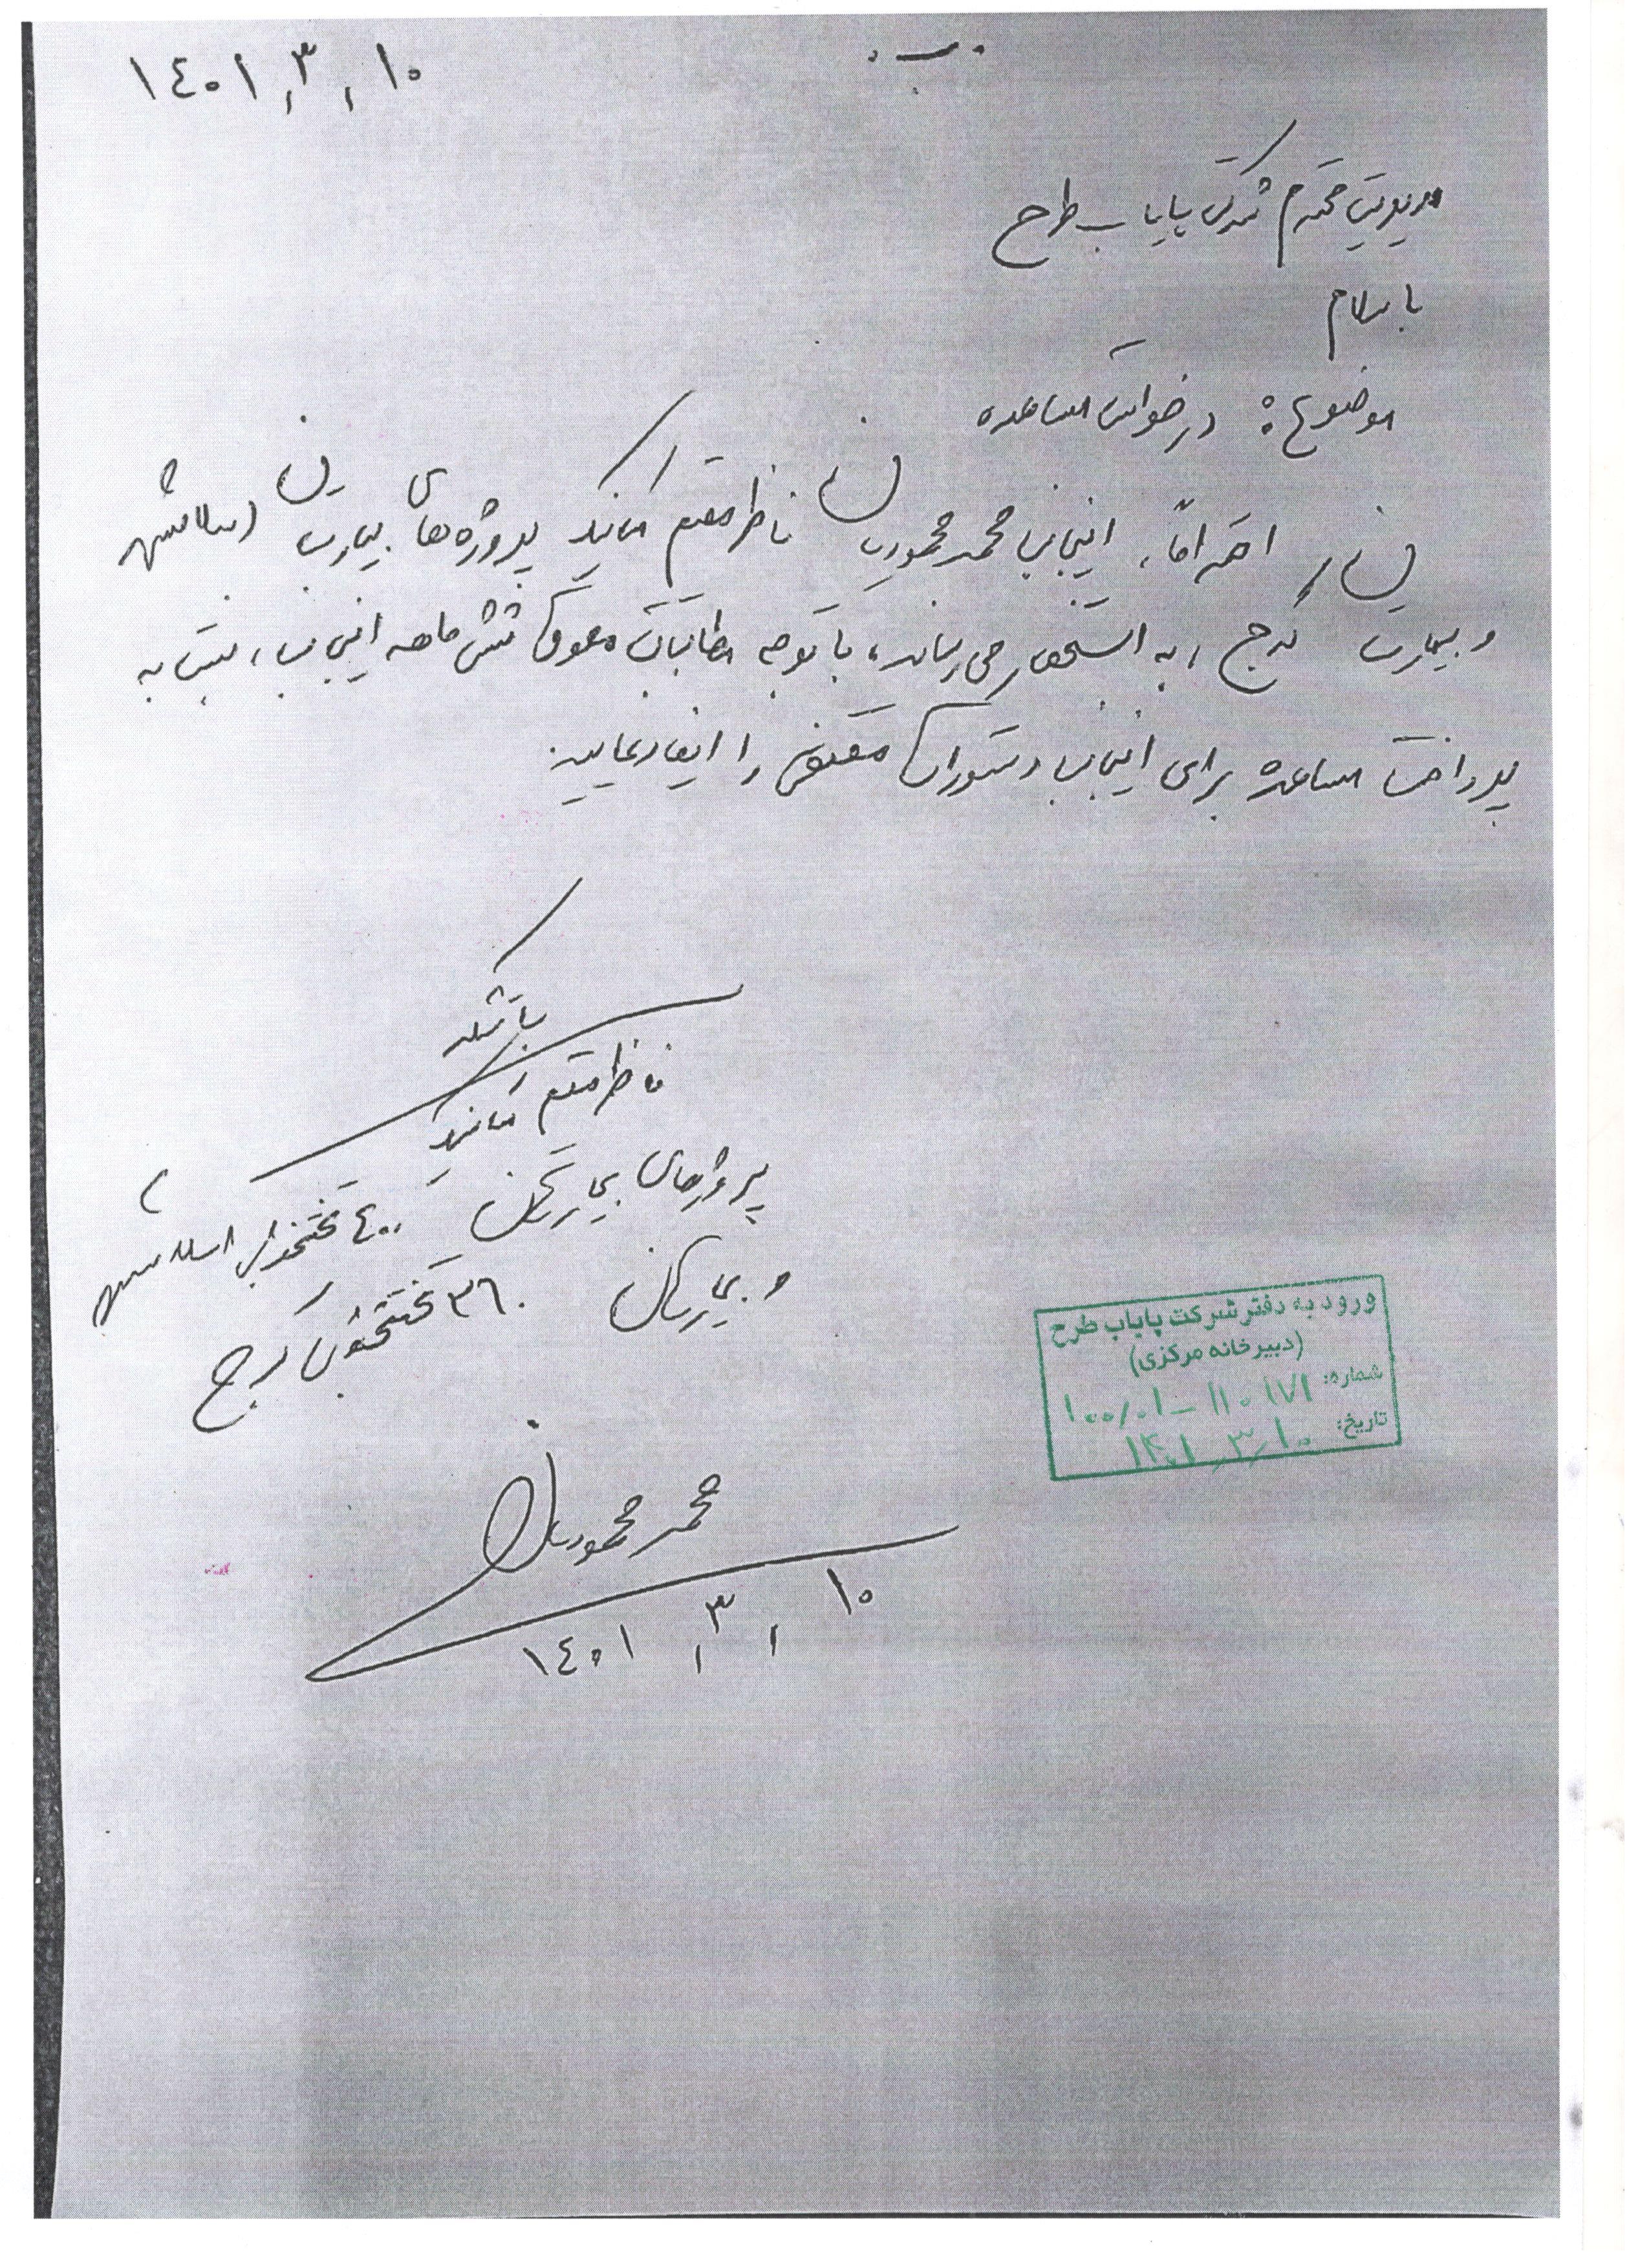 ۱۴۰۱,۳,۱۰
مدیریت محترم شرکت پایاب طرح
با سلام
موضوع: درخواست مساعده
احتراماً، اینجانب محمد محمودیان ناظر مقیم مکانیک پروژه‌های بیمارستان اسلامشهر
و بیمارستان کرج، به استحضار می‌رساند، با توجه مطالبات معوق شش ماهه اینجانب، نسبت به
پرداخت مساعده برای اینجانب دستورات مقتضی را ایفاد نمایید.
با تشکر
ناظر مقیم مکانیک
پروژه‌های بیمارستان ۴۰۰ تختخوابی اسلامشهر
و بیمارستان ۳۶۰ تختخوابی کرج
محمد محمودیان
۱۴۰۱,۳,۱۰
ورود به دفتر شرکت پایاب طرح
(دبیرخانه مرکزی)
شماره: ۱۰۰/۰۱-۱۱۰۱۷۱
تاریخ: ۱۴۰۱,۳,۱۰